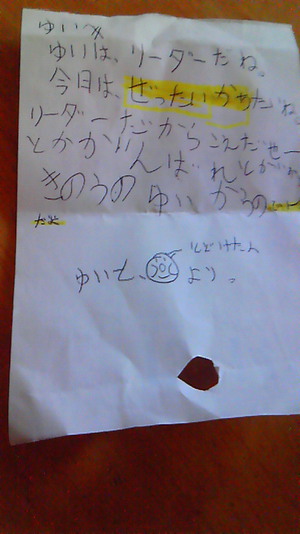 ゆいへ
ゆいは、リーダーだね。
今日は、ぜったいかちたいね。
リーダーだからこえだせー
とかがんばれとか
きのうの ゆいからの
だよ
ゆいと、
より。